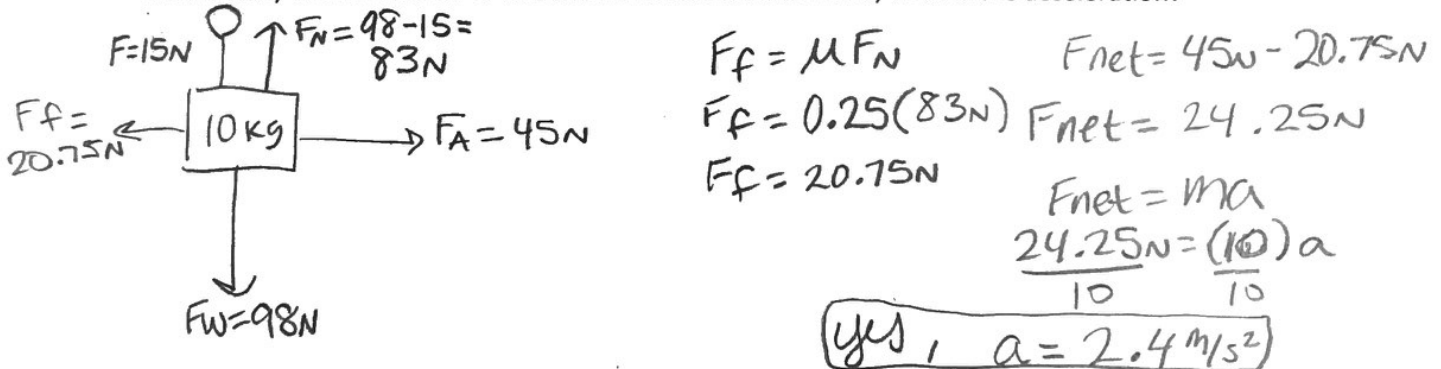 F=15N
FN=98-15=
83N
Ff=
20.75N
10 Kg
FA=45N
FW=98N
Ff=μFN
Ff=0.25(83N)
Ff=20.75N
Fnet=45N-20.75N
Fnet=24.25N
Fnet=ma
24.25N=(10)a
10 10
yes, a=2.4 m/s²